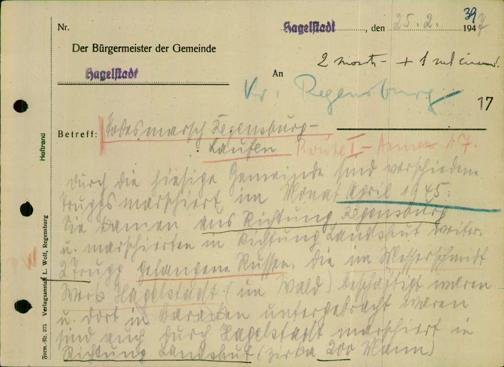 Nr.
Hagelstadt, den 25.2. 1947
39
Der Bürgermeister der Gemeinde
Hagelstadt
An
2 + 1
Kr. Regensburg
17
Betreff: Todesmarsch Regensburg-
Laufen Route I - Annex 17.
Durch die hiesige Gemeinde sind verschiedene
Trupps marschiert im Monat April 1945.
Sie kamen aus Richtung Regensburg
u. marschierten in Richtung Landshut weiter.
2 Trupp gefangene Russen, die im Messerschmidt
Werk Hagelstadt (im Wald) beschäftigt waren
u. dort in Baracken untergebracht waren
sind auch durch Hagelstadt marschiert in
Richtung Landshut (zirka 200 Mann)
Heftrand
Form.-Nr. 273 Verlagsanstalt L. Wolf, Regensburg